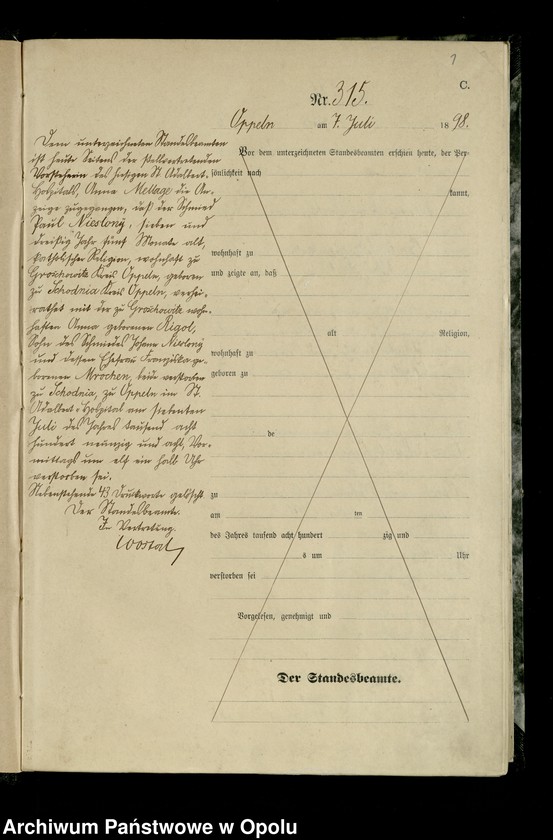 7
C.
Nr. 315.
Oppeln am 7. Juli 1898.
Dem unterzeichneten Standesbeamten
ist heute Seitens der stellvertretenden
Vorsteherin des hiesigen St. Adalbert-
Hospitals, Anna Mellage die An-
zeige zugegangen, daß der Schmied
Paul Nieslony, sieben und
dreißig Jahr fünf Monate alt,
katholischer Religion, wohnhaft zu
Groschowitz Kreis Oppeln, geboren
zu Schodnia Kreis Oppeln, verhei-
rathet mit der zu Groschowitz wohn-
haften Anna geborenen Rigol,
Sohn des Schmiedes Johann Nieslony
und dessen Ehefrau Franziska ge-
borenen Mrochen, beide verstorben
zu Schodnia, zu Oppeln im St.
Adalbert-Hospital am siebenten
Juli des Jahres tausend acht
hundert neunzig und acht, Vor-
mittags um elf ein halb Uhr
verstorben sei.
Nebenstehende 43 Druckworte gelöscht.
Der Standesbeamte.
In Vertretung.
Wostal
Vor dem unterzeichneten Standesbeamten erschien heute, der Per-
sönlichkeit nach
kannt,
wohnhaft zu
und zeigte an, daß
alt Religion,
wohnhaft zu
geboren zu
de
zu
am ten
des Jahres tausend acht hundert zig und
s um Uhr
verstorben sei
Vorgelesen, genehmigt und
Der Standesbeamte.
Archiwum Państwowe w Opolu